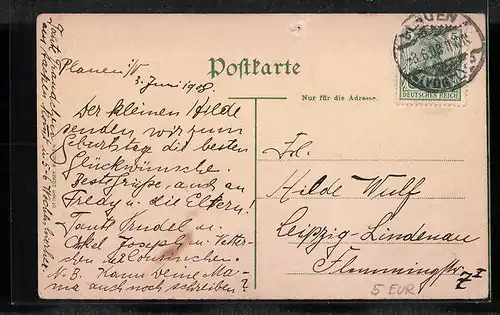 Postkarte
Nur für die Adresse.
PLAUEN
(VOGTL.)
DEUTSCHES REICH
Plauen i/V
3. Juni 1908
Der kleinen Hilde
senden wir zum
Geburtstag die besten
Glückwünsche.
Beste Grüße, auch an
Fredy u. die Eltern!
Tante Trudel u.
Onkel Joseph u. Vetter-
chen u. Cousinchen.
N.B. Kann Deine Ma-
ma auch noch schreiben?
Frl.
Hilde Wulf
Leipzig-Lindenau
Flemmingstr. 7 I
5 EUR